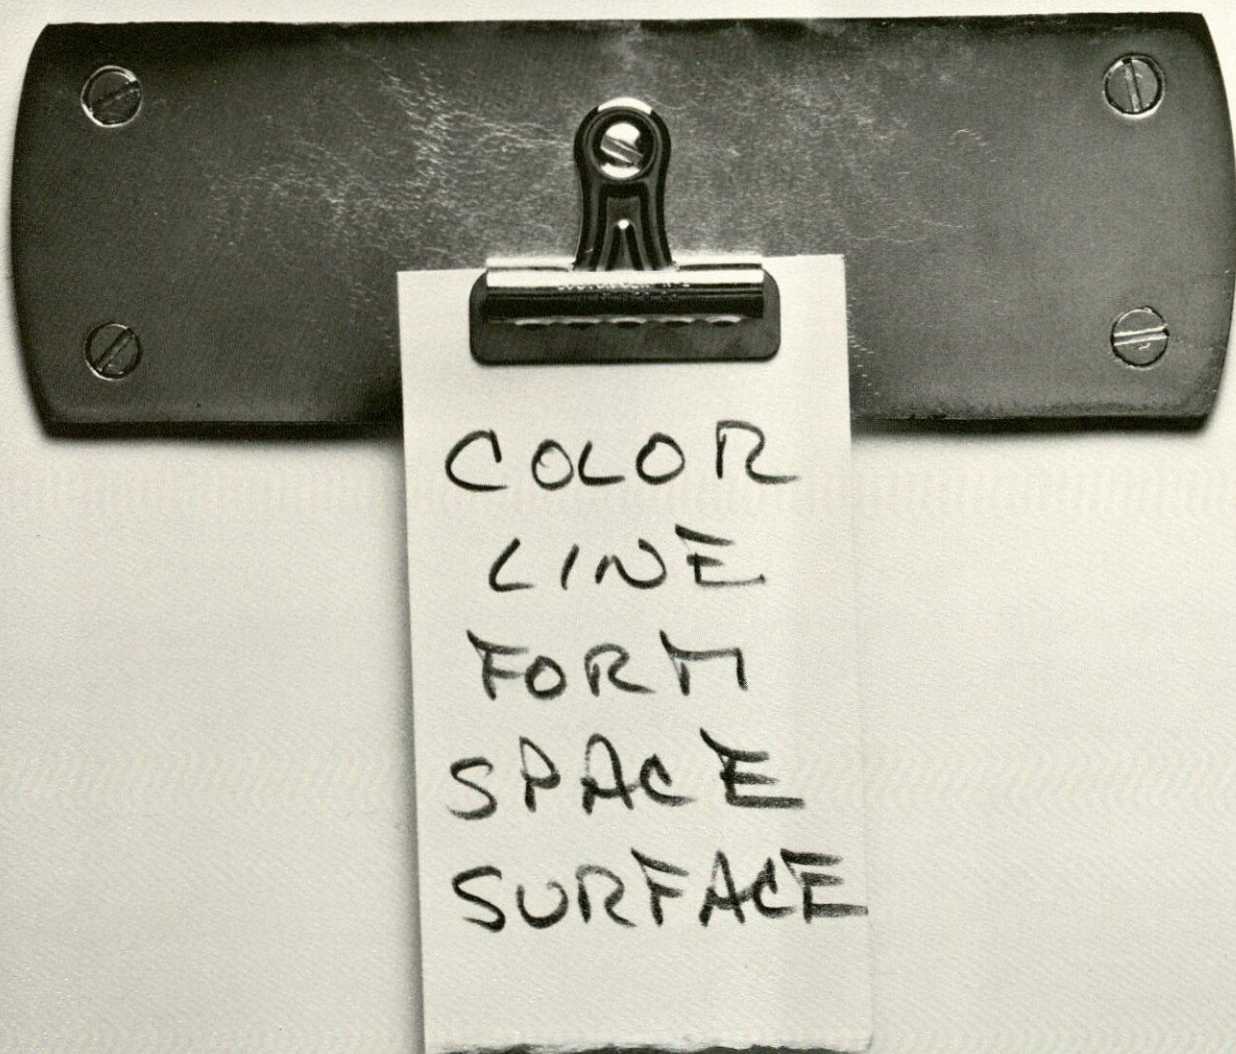 COLOR
LINE
FORM
SPACE
SURFACE